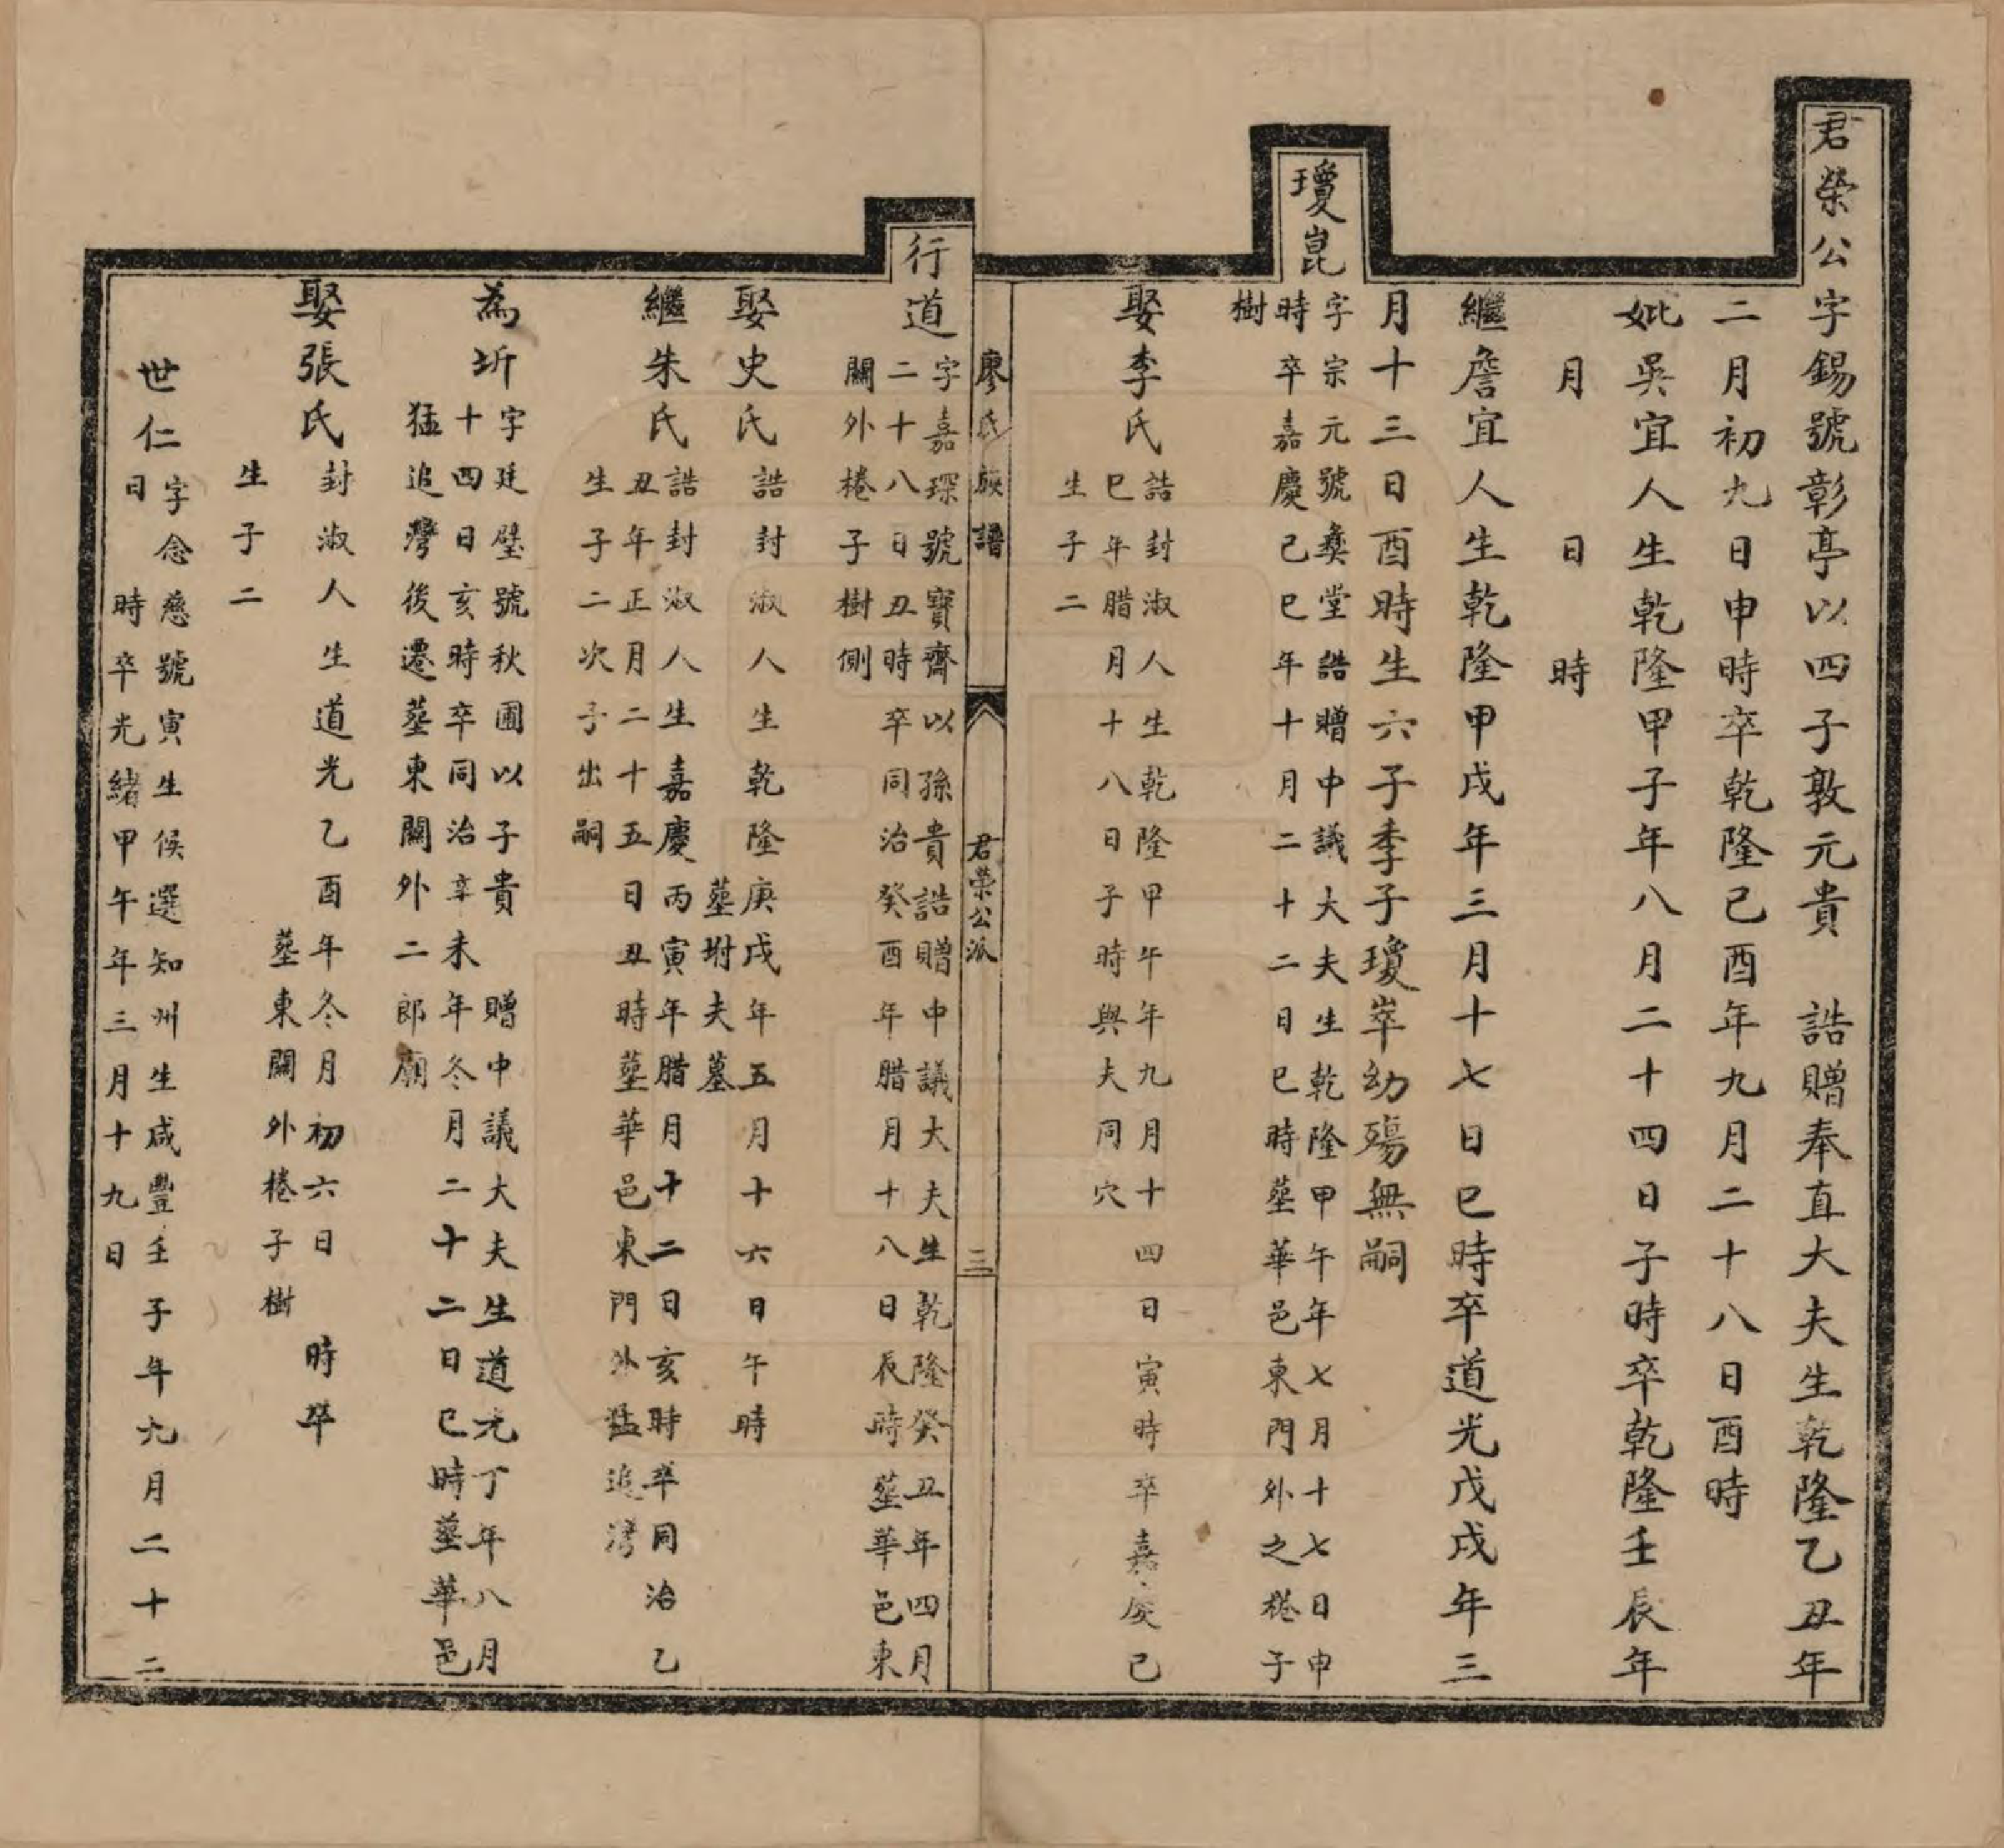 君榮公字錫號彰亭以四子敦元貴　誥贈奉直大夫生乾隆乙丑年
二月初九日申時卒乾隆己酉年九月二十八日酉時
妣吳宜人生乾隆甲子年八月二十四日子時卒乾隆壬辰年
月　日　時
繼詹宜人生乾隆甲戌年三月十七日巳時卒道光戊戌年三
月十三日酉時生六子季子瓊崒幼殤無嗣
瓊崑
字宗元號彝堂誥贈中議大夫生乾隆甲午年七月十七日申
時卒嘉慶己巳年十月二十二日巳時塟華邑東門外之棬子
樹
娶李氏
誥封淑人生乾隆甲午年九月十四日寅時卒嘉慶己
巳年腊月十八日子時與夫同穴
生子二
廖氏族譜
君榮公派
三
行道
字嘉琛號寶齋以孫貴誥贈中議大夫生乾隆癸丑年四月
二十八日丑時卒同治癸酉年腊月十八日辰時塟華邑東
關外棬子樹側
娶史氏
誥封淑人生乾隆庚戌年五月十六日午時
塟坿夫墓
繼朱氏
誥封淑人生嘉慶丙寅年腊月十二日亥時卒同治乙
丑年正月二十五日丑時塟華邑東門外猛追灣
生子二次子出嗣
為圻
字廷璧號秋圃以子貴　贈中議大夫生道光丁年八月
十四日亥時卒同治辛未年冬月二十二日巳時塟華邑
猛追灣後遷塟東關外二郎廟
娶張氏
封淑人生道光乙酉年冬月初六日　時卒
塟東關外棬子樹
生子二
世仁
字念慈號寅生候選知州生咸豐壬子年九月二十二
日　時卒光緒甲午年三月十九日